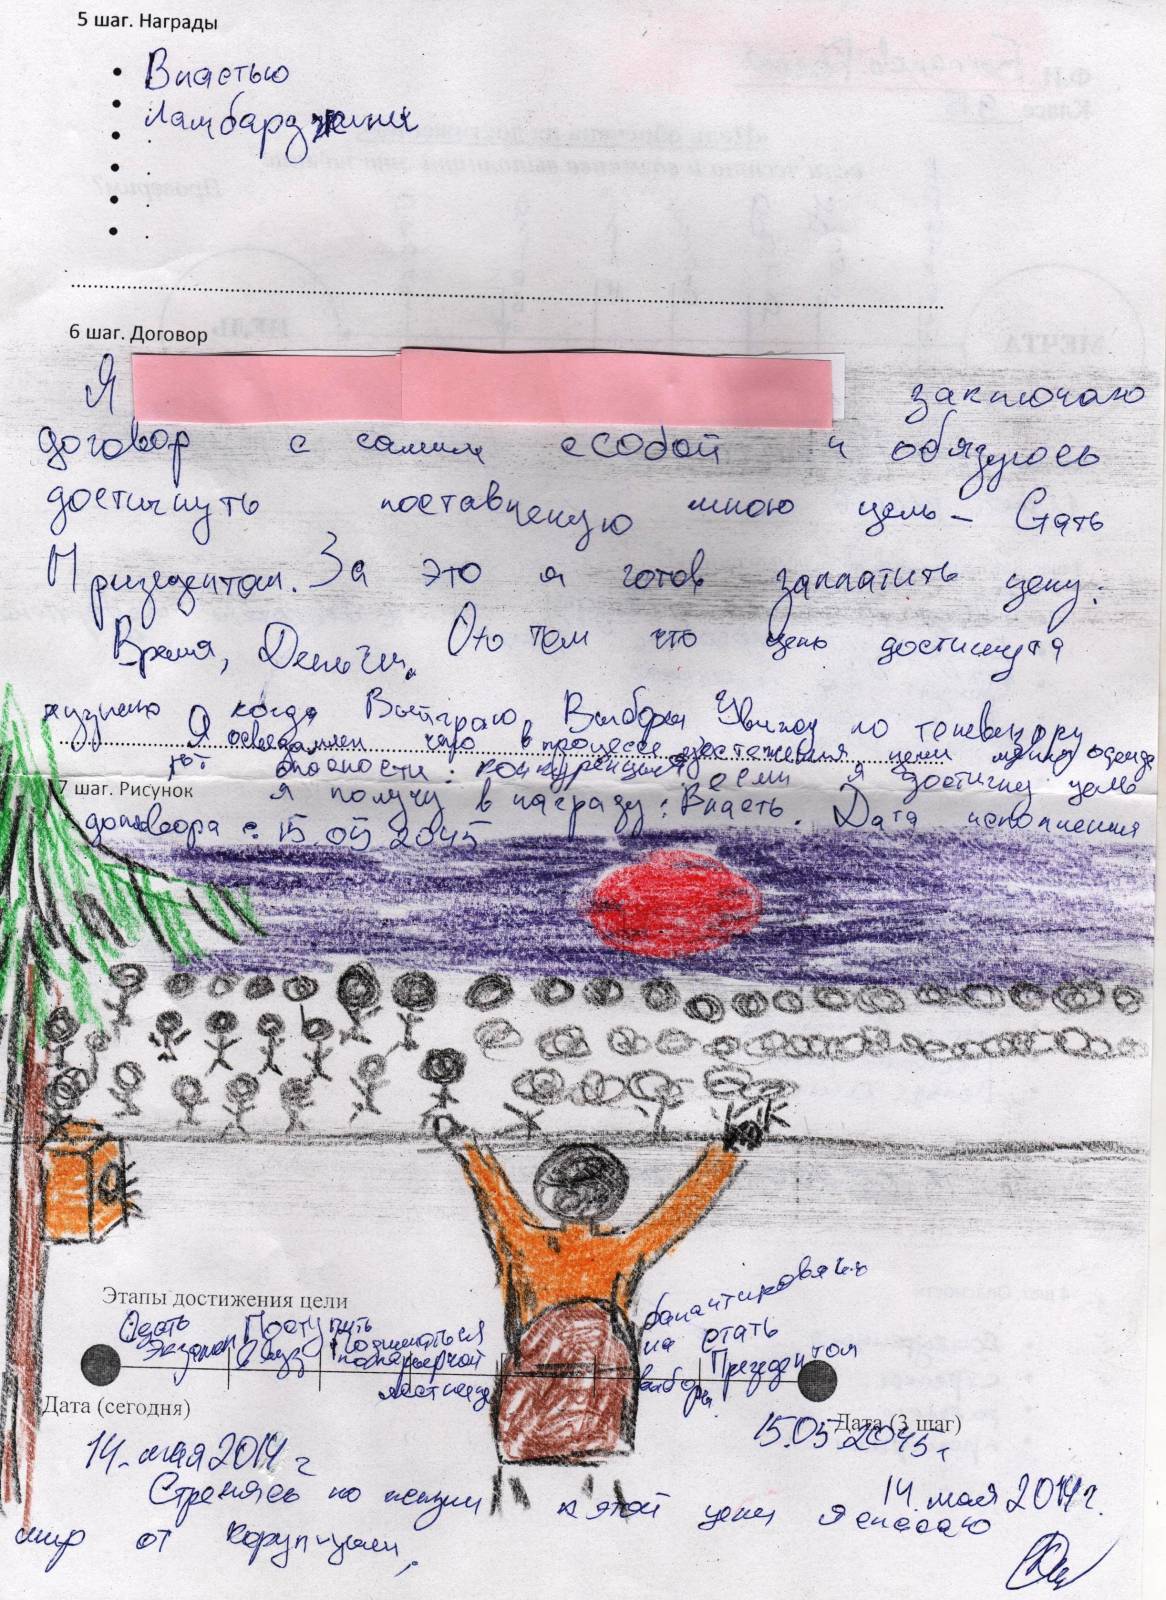 5 шаг. Награды
Властью
Ламбарджини
6 шаг. Договор
Я заключаю
договор с самим ссобой и обязуюсь
достигнуть поставленую мною цель – Стать
Призедентом. За это я готов заплатить цену:
Время, Деньги. О том что цель достигнута
я узнаю когда Выйграю Выборы Увижу по телевизору
Я осведамлен что в процессе достежения цели меня ожида
ют опасности: конкуренция, если я достигну цель
7 шаг. Рисунок
я получу в награду: Власть. Дата исполнения
договора: 15.05.2045
Этапы достижения цели
Сдать экзамен
Поступить в вуз
Подниматься по карьерной лестнице
балатироваться на выборы
стать Президентом
Дата (сегодня)
Дата (3 шаг)
14 мая 2014 г
15.05.2045 г.
Стремясь по жизни к этой цели я спасаю
14 мая 2014 г.
мир от коруп-ции,